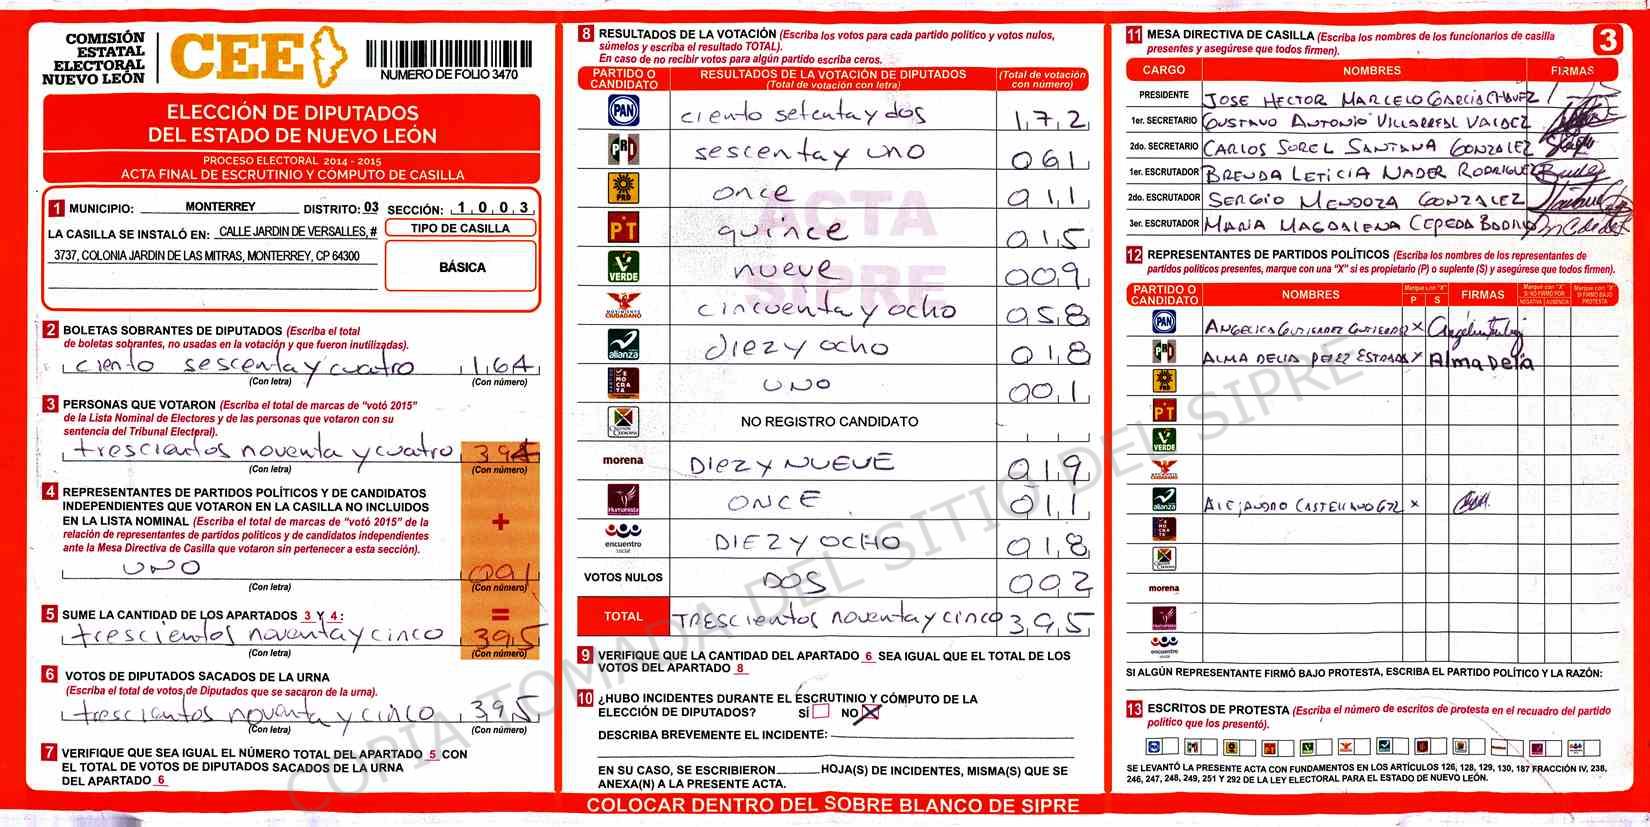 COMISIÓN
ESTATAL
ELECTORAL
NUEVO LEÓN
CEE
NUMERO DE FOLIO 3470
ELECCIÓN DE DIPUTADOS
DEL ESTADO DE NUEVO LEÓN
PROCESO ELECTORAL 2014 - 2015
ACTA FINAL DE ESCRUTINIO Y CÓMPUTO DE CASILLA
1 MUNICIPIO: MONTERREY DISTRITO: 03 SECCIÓN: 1 0 0 3
LA CASILLA SE INSTALÓ EN: CALLE JARDIN DE VERSALLES, #
3737, COLONIA JARDIN DE LAS MITRAS, MONTERREY, CP 64300
TIPO DE CASILLA
BÁSICA
2 BOLETAS SOBRANTES DE DIPUTADOS (Escriba el total
de boletas sobrantes, no usadas en la votación y que fueron inutilizadas).
ciento sescenta y cuatro 164
(Con letra) (Con número)
3 PERSONAS QUE VOTARON (Escriba el total de marcas de "votó 2015"
de la Lista Nominal de Electores y de las personas que votaron con su
sentencia del Tribunal Electoral).
trescientos noventa y cuatro 394
(Con letra) (Con número)
4 REPRESENTANTES DE PARTIDOS POLÍTICOS Y DE CANDIDATOS
INDEPENDIENTES QUE VOTARON EN LA CASILLA NO INCLUIDOS
EN LA LISTA NOMINAL (Escriba el total de marcas de "votó 2015" de la
relación de representantes de partidos políticos y de candidatos independientes
ante la Mesa Directiva de Casilla que votaron sin pertenecer a esta sección).
+
UNO 001
(Con letra) (Con número)
=
5 SUME LA CANTIDAD DE LOS APARTADOS 3 Y 4:
trescientos noventa y cinco 395
(Con letra) (Con número)
6 VOTOS DE DIPUTADOS SACADOS DE LA URNA
(Escriba el total de votos de Diputados que se sacaron de la urna).
trescientos noventa y cinco 395
(Con letra) (Con número)
7 VERIFIQUE QUE SEA IGUAL EL NÚMERO TOTAL DEL APARTADO 5 CON
EL TOTAL DE VOTOS DE DIPUTADOS SACADOS DE LA URNA
DEL APARTADO 6
8 RESULTADOS DE LA VOTACIÓN (Escriba los votos para cada partido político y votos nulos,
súmelos y escriba el resultado TOTAL).
En caso de no recibir votos para algún partido escriba ceros.
PARTIDO O CANDIDATO RESULTADOS DE LA VOTACIÓN DE DIPUTADOS (Total de votación con letra) (Total de votación con número)
PAN ciento setenta y dos 172
PRI sescenta y uno 061
PRD once 011
PT quince 015
VERDE nueve 009
MOVIMIENTO CIUDADANO cincuenta y ocho 058
alianza diez y ocho 018
DEMOCRATA UNO 001
CRUZADA CIUDADANA NO REGISTRO CANDIDATO
morena DIEZ Y NUEVE 019
Humanista ONCE 011
encuentro social DIEZ Y OCHO 018
VOTOS NULOS DOS 002
TOTAL TRESCIENTOS noventa y cinco 395
ACTA
SIPRE
9 VERIFIQUE QUE LA CANTIDAD DEL APARTADO 6 SEA IGUAL QUE EL TOTAL DE LOS
VOTOS DEL APARTADO 8
10 ¿HUBO INCIDENTES DURANTE EL ESCRUTINIO Y CÓMPUTO DE LA
ELECCIÓN DE DIPUTADOS? SÍ NO X
DESCRIBA BREVEMENTE EL INCIDENTE:
EN SU CASO, SE ESCRIBIERON HOJA(S) DE INCIDENTES, MISMA(S) QUE SE
ANEXA(N) A LA PRESENTE ACTA.
COLOCAR DENTRO DEL SOBRE BLANCO DE SIPRE
11 MESA DIRECTIVA DE CASILLA (Escriba los nombres de los funcionarios de casilla
presentes y asegúrese que todos firmen).
3
CARGO NOMBRES FIRMAS
PRESIDENTE JOSE HECTOR MARCELO GARCIA CHAVEZ
1er. SECRETARIO GUSTAVO ANTONIO VILLARREAL VALDEZ
2do. SECRETARIO CARLOS SOREL SANTANA GONZALEZ
1er. ESCRUTADOR BRENDA LETICIA NADER RODRIGUEZ
2do. ESCRUTADOR SERGIO MENDOZA GONZALEZ
3er. ESCRUTADOR MARIA MAGDALENA CEPEDA
12 REPRESENTANTES DE PARTIDOS POLÍTICOS (Escriba los nombres de los representantes de
partidos políticos presentes, marque con una "X" si es propietario (P) o suplente (S) y asegúrese que todos firmen).
PARTIDO O CANDIDATO NOMBRES Marque con "X" P S FIRMAS Marque con "X" SI NO FIRMÓ POR NEGATIVA AUSENCIA Marque con "X" SI FIRMÓ BAJO PROTESTA
PAN ANGELICA GUTIERREZ GUTIERREZ X
PRI ALMA DELIA PEREZ ESTRADA X Alma Delia
PRD
PT
VERDE
MOVIMIENTO CIUDADANO
alianza ALEJANDRO CASTELLANO GTZ X
DEMOCRATA
CRUZADA CIUDADANA
morena
Humanista
encuentro social
SI ALGÚN REPRESENTANTE FIRMÓ BAJO PROTESTA, ESCRIBA EL PARTIDO POLÍTICO Y LA RAZÓN:
13 ESCRITOS DE PROTESTA (Escriba el número de escritos de protesta en el recuadro del partido
político que los presentó).
SE LEVANTÓ LA PRESENTE ACTA CON FUNDAMENTOS EN LOS ARTÍCULOS 126, 128, 129, 130, 187 FRACCIÓN IV, 238,
246, 247, 248, 249, 251 Y 292 DE LA LEY ELECTORAL PARA EL ESTADO DE NUEVO LEÓN.
COPIA TOMADA DEL SITIO DEL SIPRE